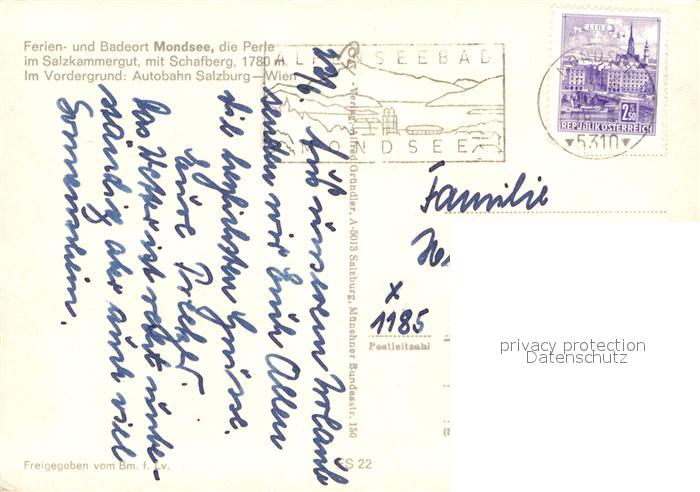 Ferien- und Badeort Mondsee, die Perle
im Salzkammergut, mit Schafberg, 1780 m.
Im Vordergrund: Autobahn Salzburg—Wien
ALPENSEEBAD
MONDSEE
LINZ
2.S50
REPUBLIK ÖSTERREICH
5310
Verlag Alfred Gründler, A-5013 Salzburg, Münchner Bundesstr. 156
Aus unserem Urlaub
senden wir Euch Allen
die herzlichsten Grüsse.
Eure
Das Wetter ist recht unbe-
ständig aber auch viel
Sonnenschein.
Familie
He
x
1185
Postleitzahl
privacy protection
Datenschutz
Freigegeben vom Bm. f. Lv.
ES 22